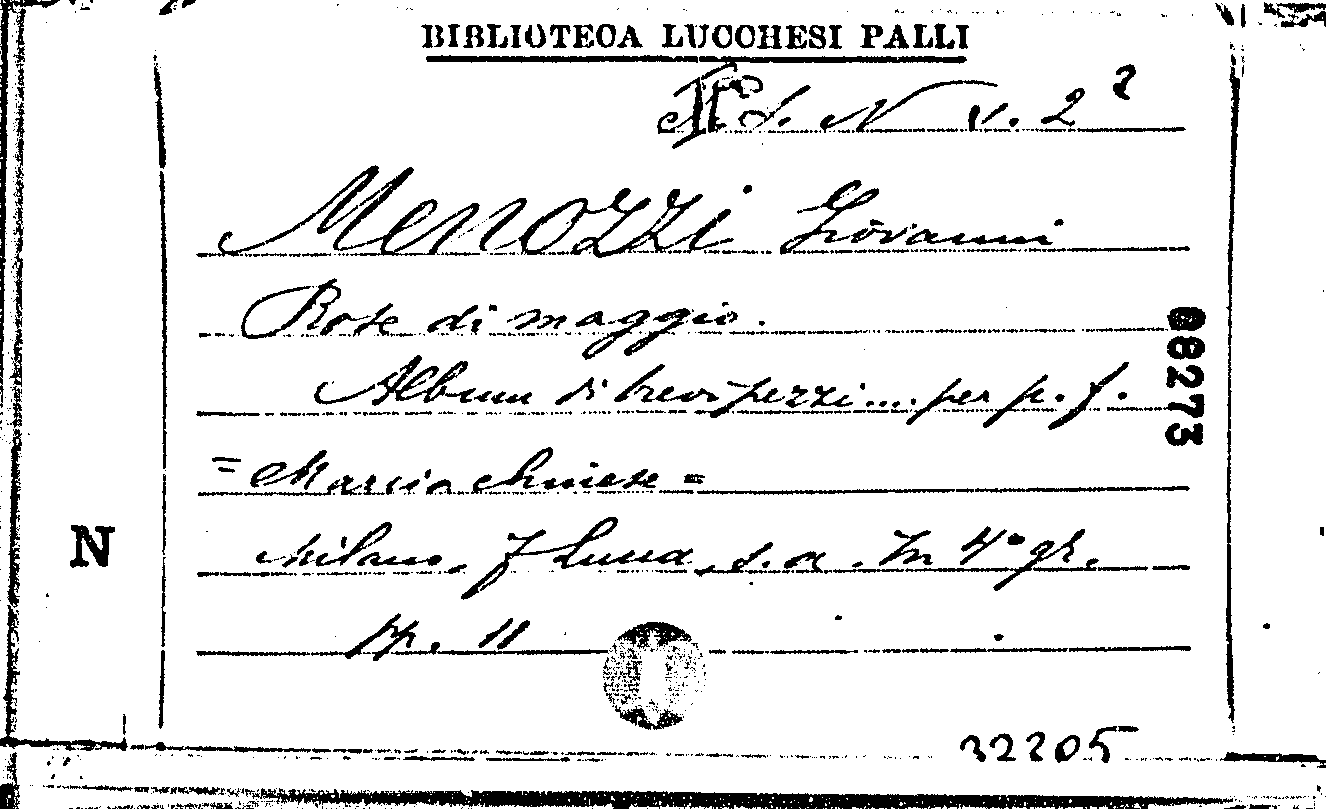 BIBLIOTECA LUCCHESI PALLI
N v. 2²
MENOZZI Giovanni
Rose di maggio.
Album di brevi pezzi.... per p. f.
= Marcia chinese =
Milano, F Lucca, s. a. In 4° gr.
pp. 11
N
68273
32205